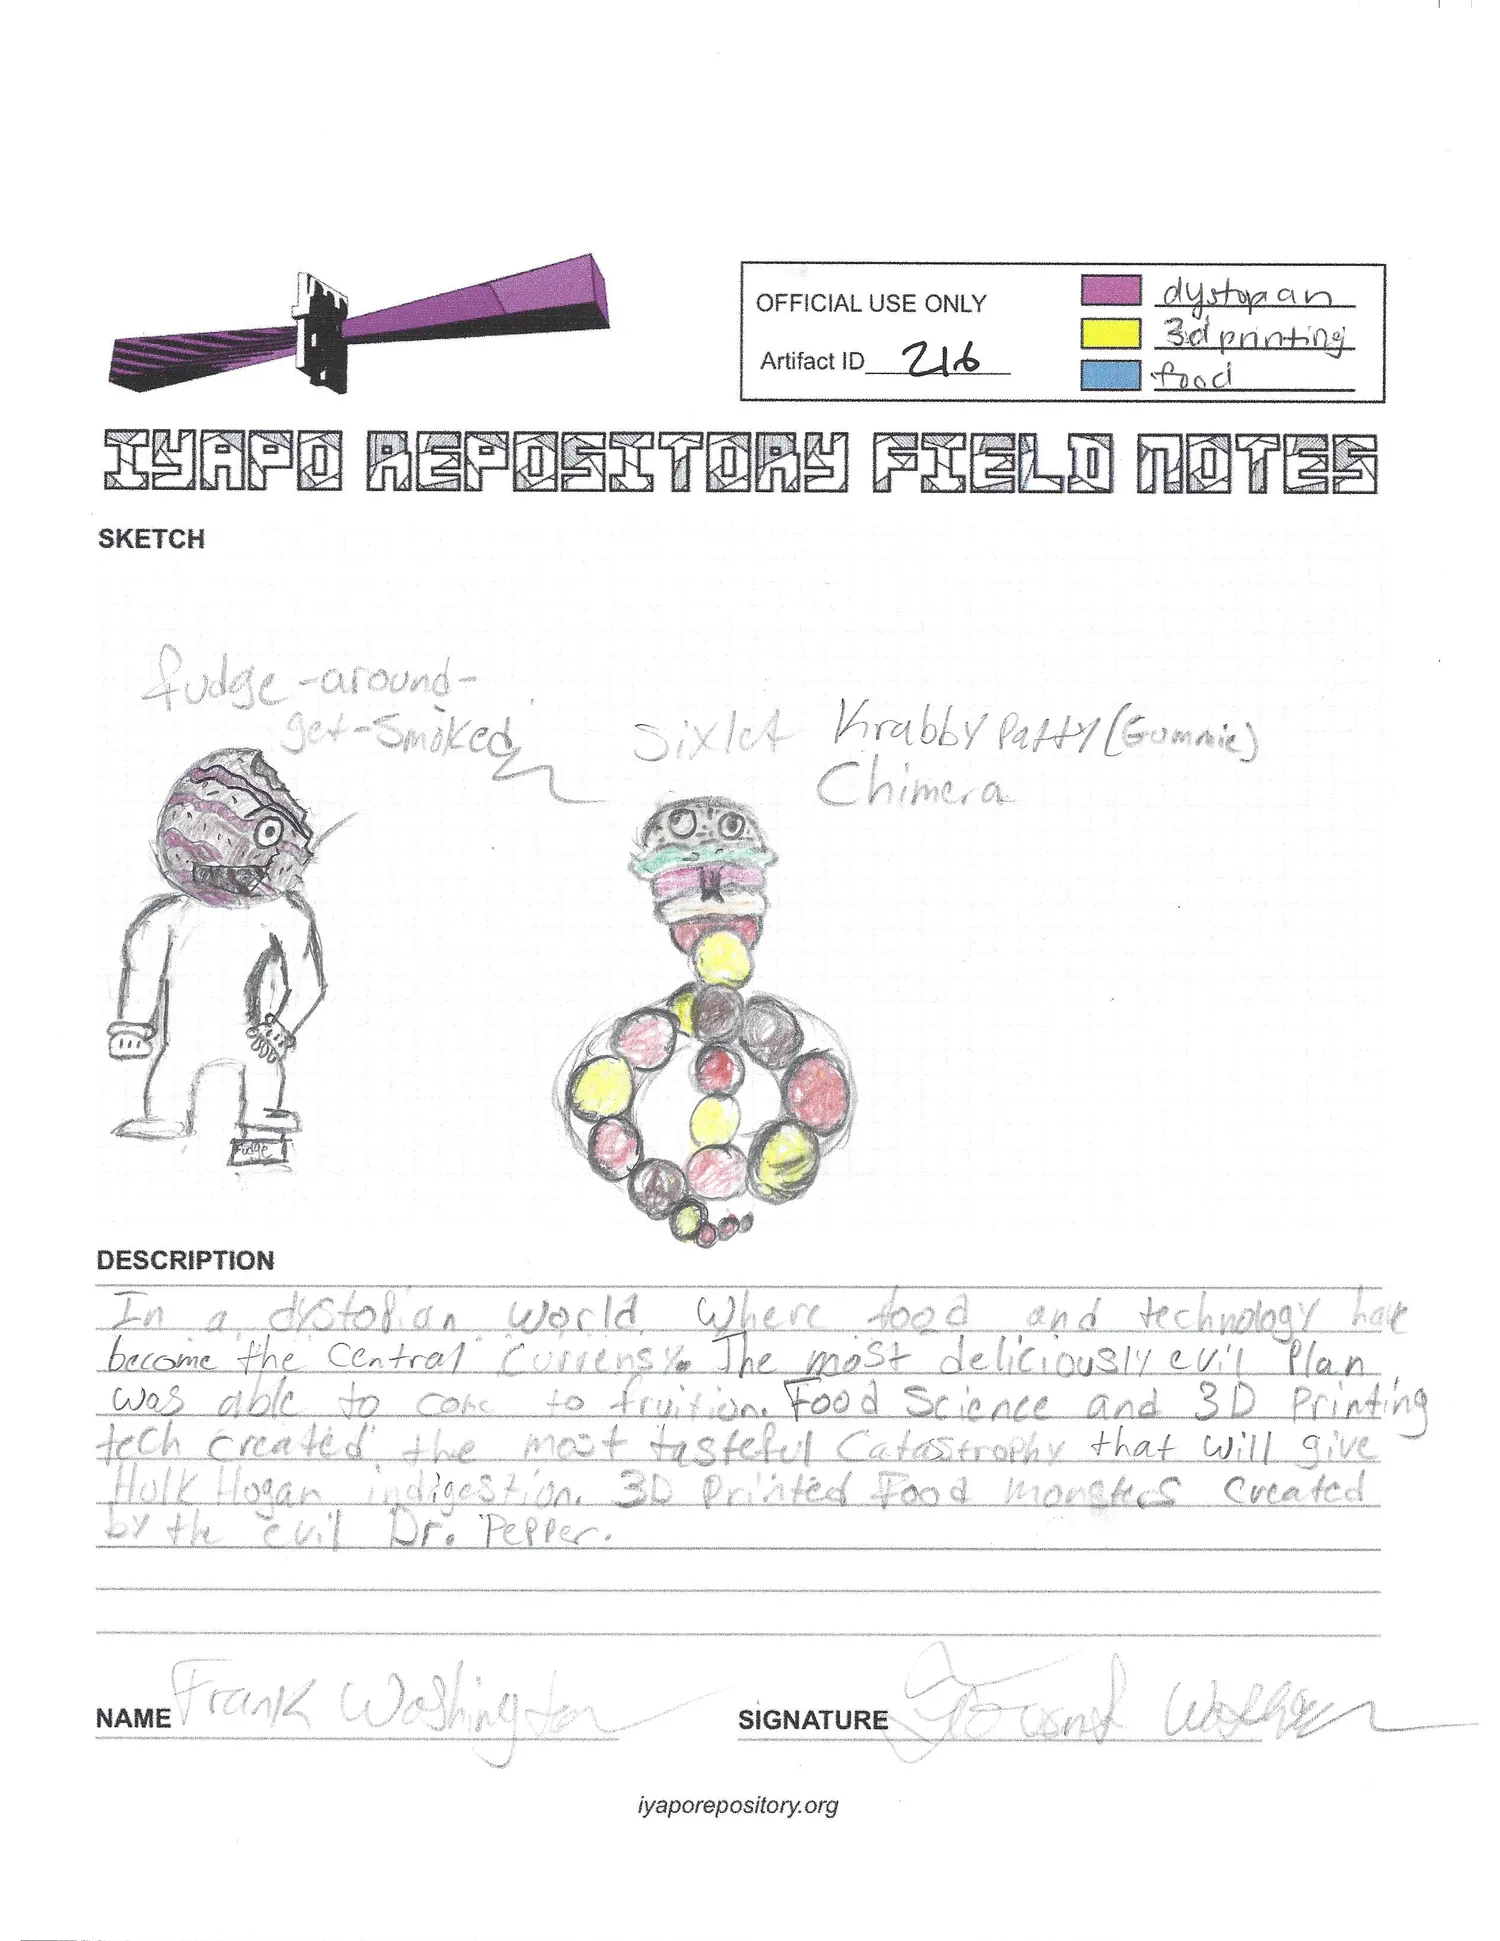 OFFICIAL USE ONLY
Artifact ID 216
dystopian
3d printing
food
IYAPO REPOSITORY FIELD NOTES
SKETCH
fudge-around-
get-smoked
Sixlet Krabby Patty (Gummie)
Chimera
Fudge
DESCRIPTION
In a dystopian world where food and technology have
become the central currensy. The most deliciously evil plan
was able to come to fruition. Food Science and 3D Printing
tech created the most tasteful Catastrophy that will give
Hulk Hogan indigestion. 3D Printed Food monsters created
by the evil Dr. Pepper.
NAME Frank Washington
SIGNATURE
iyaporepository.org